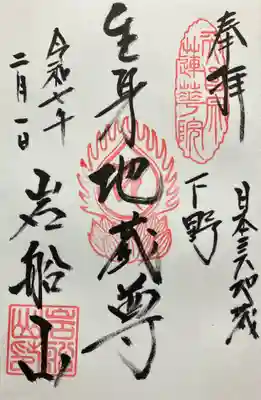 奉拝
日本三大地蔵
下野
生身地蔵尊
岩船山
令和七年
二月一日
蓮華院